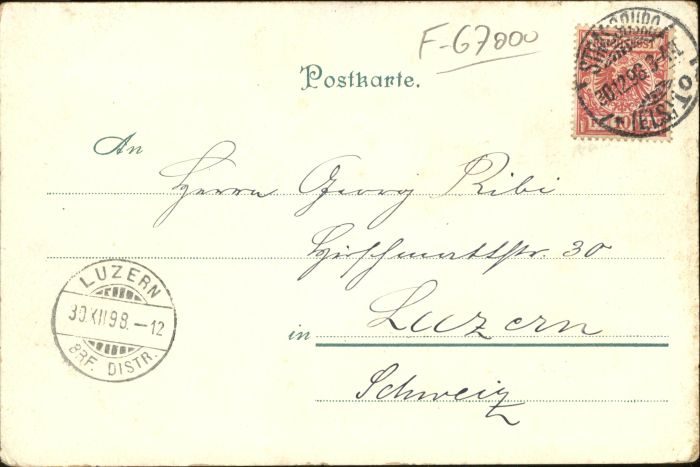 F-67000
STRASSBURG
30.12.98. 3-4N.
(ELS.)
10
Postkarte.
An
Herrn Georg Ribi
Hirschmattstr. 30
in Luzern
Schweiz
LUZERN
30.XII.98.-12
BRF. DISTR.